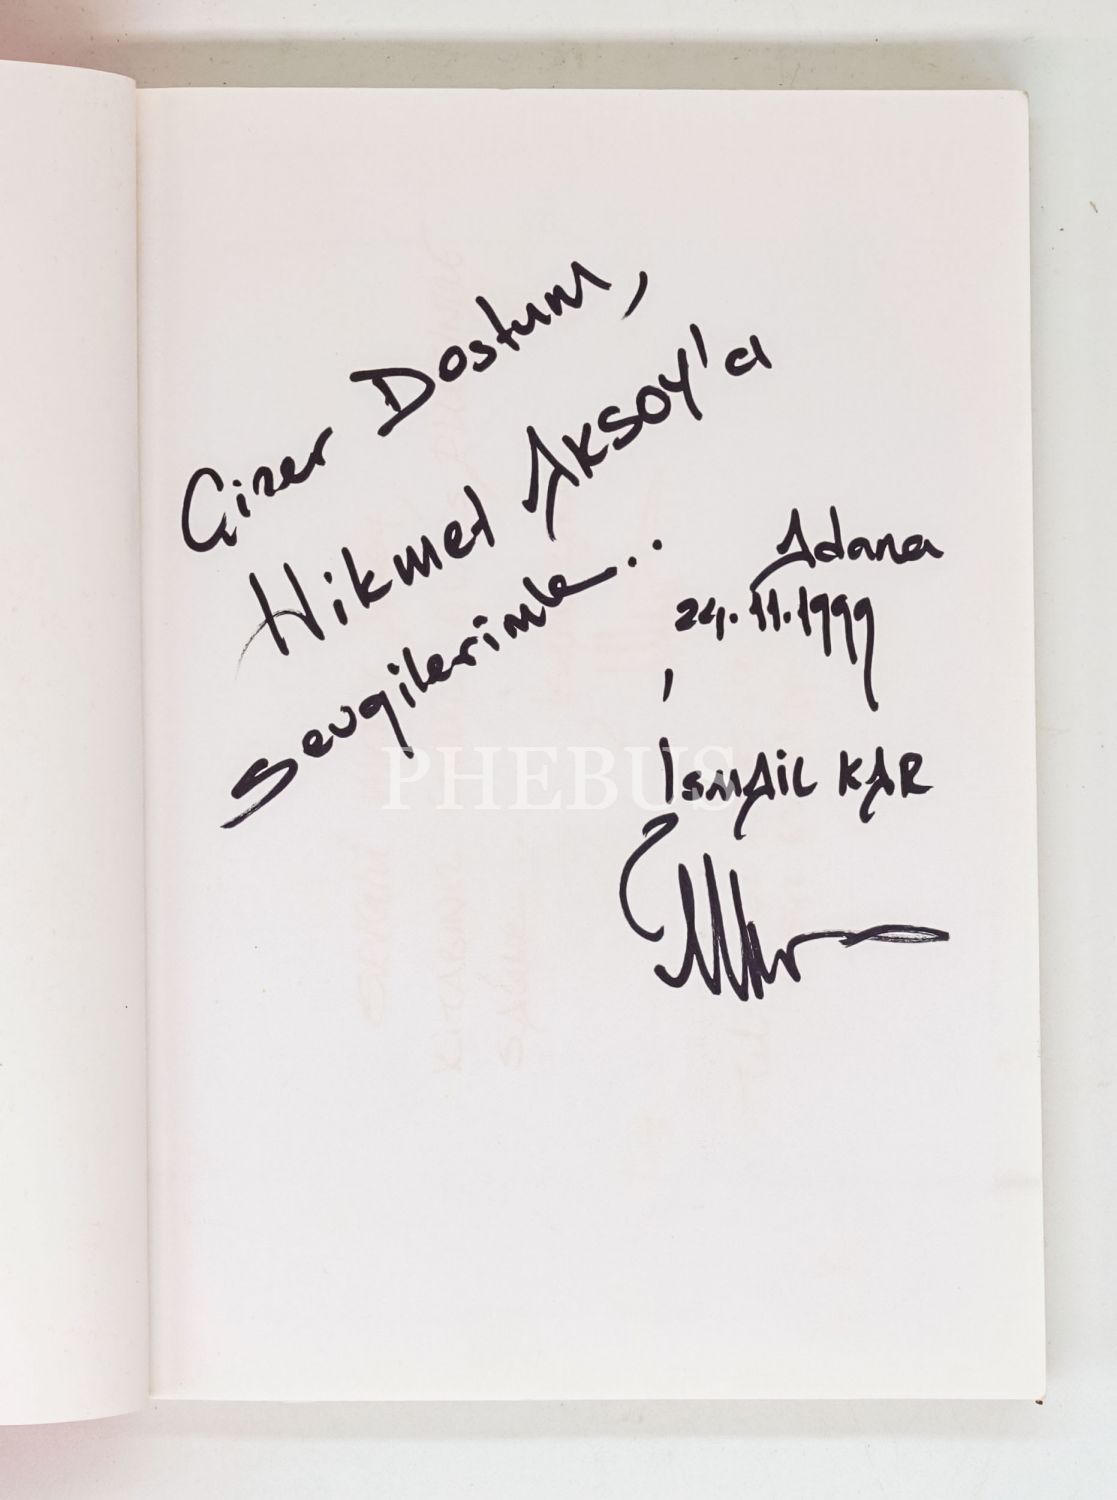 Çizer Dostum,
Hikmet AKSOY'a
sevgilerimle..
Adana
24.11.1999
İSMAİL KAR
PHEBUS